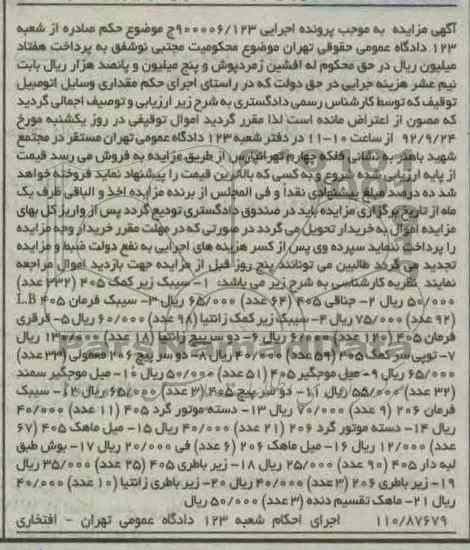 آگهی مزایده به موجب پرونده اجرایی ۹۰۰۰۰۶/۱۲۳ج موضوع حکم صادره از شعبه
۱۲۳ دادگاه عمومی حقوقی تهران موضوع محکومیت مجتبی نوشفق به پرداخت هفتاد
میلیون ریال در حق محکوم له افشین زمردپوش و پنج میلیون و پانصد هزار ریال بابت
نیم عشر هزینه جرایی در حق دولت که در راستای اجرای حکم مقداری وسایل اتومبیل
توقیف که توسط کارشناس رسمی دادگستری به شرح زیر ارزیابی و توصیف اجمالی گردید
که مصون از اعتراض مانده است لذا مقرر گردید اموال توقیفی در روز یکشنبه مورخ
۹۲/۹/۲۴ از ساعت ۱۰-۱۱ در دفتر شعبه ۱۲۳ دادگاه عمومی تهران مستقر در مجتمع
شهید باهنر به نشانی فلکه چهارم تهرانپارس از طریق مزایده به فروش می رسد قیمت
از پایه ارزیابی شده شروع و به کسی که بالاترین قیمت را پیشنهاد نماید فروخته خواهد
شد ده درصد مبلغ پیشنهادی نقداً و فی المجلس از برنده مزایده اخذ و الباقی ظرف یک
ماه از تاریخ برگزاری مزایده باید در صندوق دادگستری تودیع گردد پس از واریز کل بهای
مزایده اموال به خریدار تحویل می گردد در صورتی که در مهلت مقرر خریدار وجه مزایده
را پرداخت ننماید سپرده وی پس از کسر هزینه های اجرایی به نفع دولت ضبط و مزایده
تجدید می گردد طالبین می توانند پنج روز قبل از مزایده جهت بازدید اموال مراجعه
نمایند نظریه کارشناسی به شرح زیر می باشد: ۱- سیبک زیر کمک ۴۰۵ (۳۳۲ عدد)
۵۰/۰۰۰ ریال ۲- جناقی ۴۰۵ (۶۴ عدد) ۶۵/۰۰۰ ریال ۳- سیبک فرمان ۴۰۵ L.B
(۹۲ عدد) ۷۵/۰۰۰ ریال ۴- سیبک زیر کمک زانتیا (۹۸ عدد) ۶۰/۰۰۰ ریال ۵- قرقری
فرمان ۴۰۵ (۱۲۰ عدد) ریال ۶- دو سر پیچ زانتیا (۱۸ عدد) ریال
۷- توپی سر کمک ۴۰۵ (۵۹ عدد) ۴۰/۰۰۰ ریال ۸- دو سر پیچ ۲۰۶ معمولی (۳۳ عدد)
۶۵/۰۰۰ ریال ۹- میل موجگیر ۴۰۵ (۵۱ عدد) ۵۰/۰۰۰ ریال ۱۰- میل موجگیر سمند
(۳۲ عدد) ۵۵/۰۰۰ ریال ۱۱- دو سر پیچ ۴۰۵ (۳ عدد) ۶۵/۰۰۰ ریال ۱۲- سیبک
فرمان ۲۰۶ (۹ عدد) ریال ۱۳- دسته موتور گرد ۴۰۵ (۱۱ عدد) ۴۰/۰۰۰
ریال ۱۴- دسته موتور گرد ۲۰۶ (۲۱ عدد) ۴۰/۰۰۰ ریال ۱۵- میل ماهک ۴۰۵ (۶۷
عدد) ۱۲/۰۰۰ ریال ۱۶- میل ماهک ۲۰۶ (۶ عدد) فی ۲۰/۰۰۰ ریال ۱۷- بوش طبق
لبه دار ۴۰۵ (۹۰ عدد) ۲۵/۰۰۰ ریال ۱۸- زیر باطری ۴۰۵ (۲۵ عدد) ۳۵/۰۰۰ ریال
۱۹- زیر باطری ۲۰۶ (۳ عدد) ۴۰/۰۰۰ ریال ۲۰- زیر باطری زانتیا (۱۰ عدد) ۴۰/۰۰۰
ریال ۲۱- ماهک تقسیم دنده (۳ عدد) ۵۰/۰۰۰ ریال
۱۱۰/۸۷۶۷۹ اجرای احکام شعبه ۱۲۳ دادگاه عمومی تهران - افتخاری